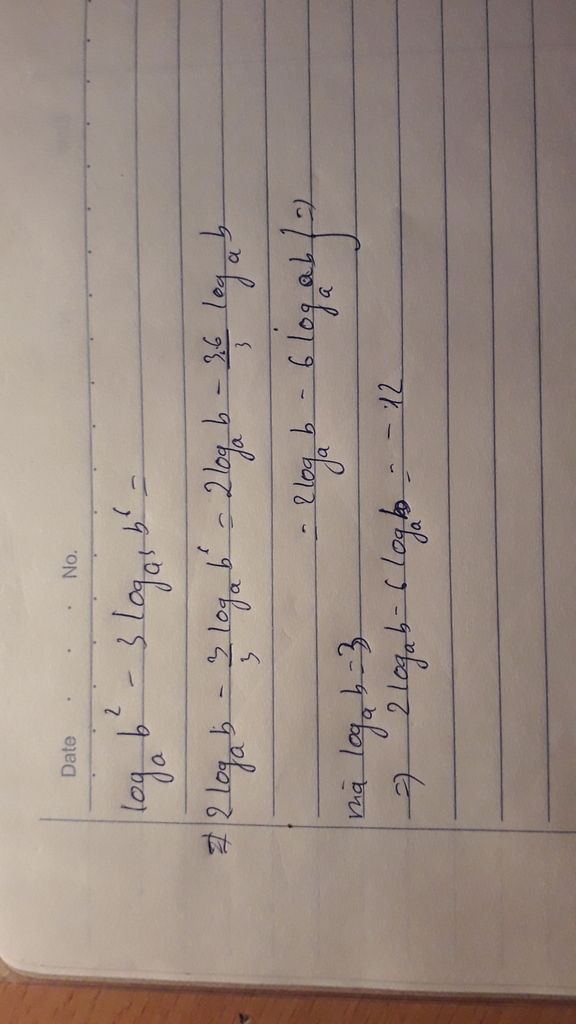 Date . . . No.
log_a b^2 - 3 log_{a^3} b^6 =
2 log_a b - 3/3 log_a b^6 = 2 log_a b - 3.6/3 log_a b
= 2 log_a b - 6 log_a b
mà log_a b = 3
=> 2 log_a b - 6 log_a b = -12